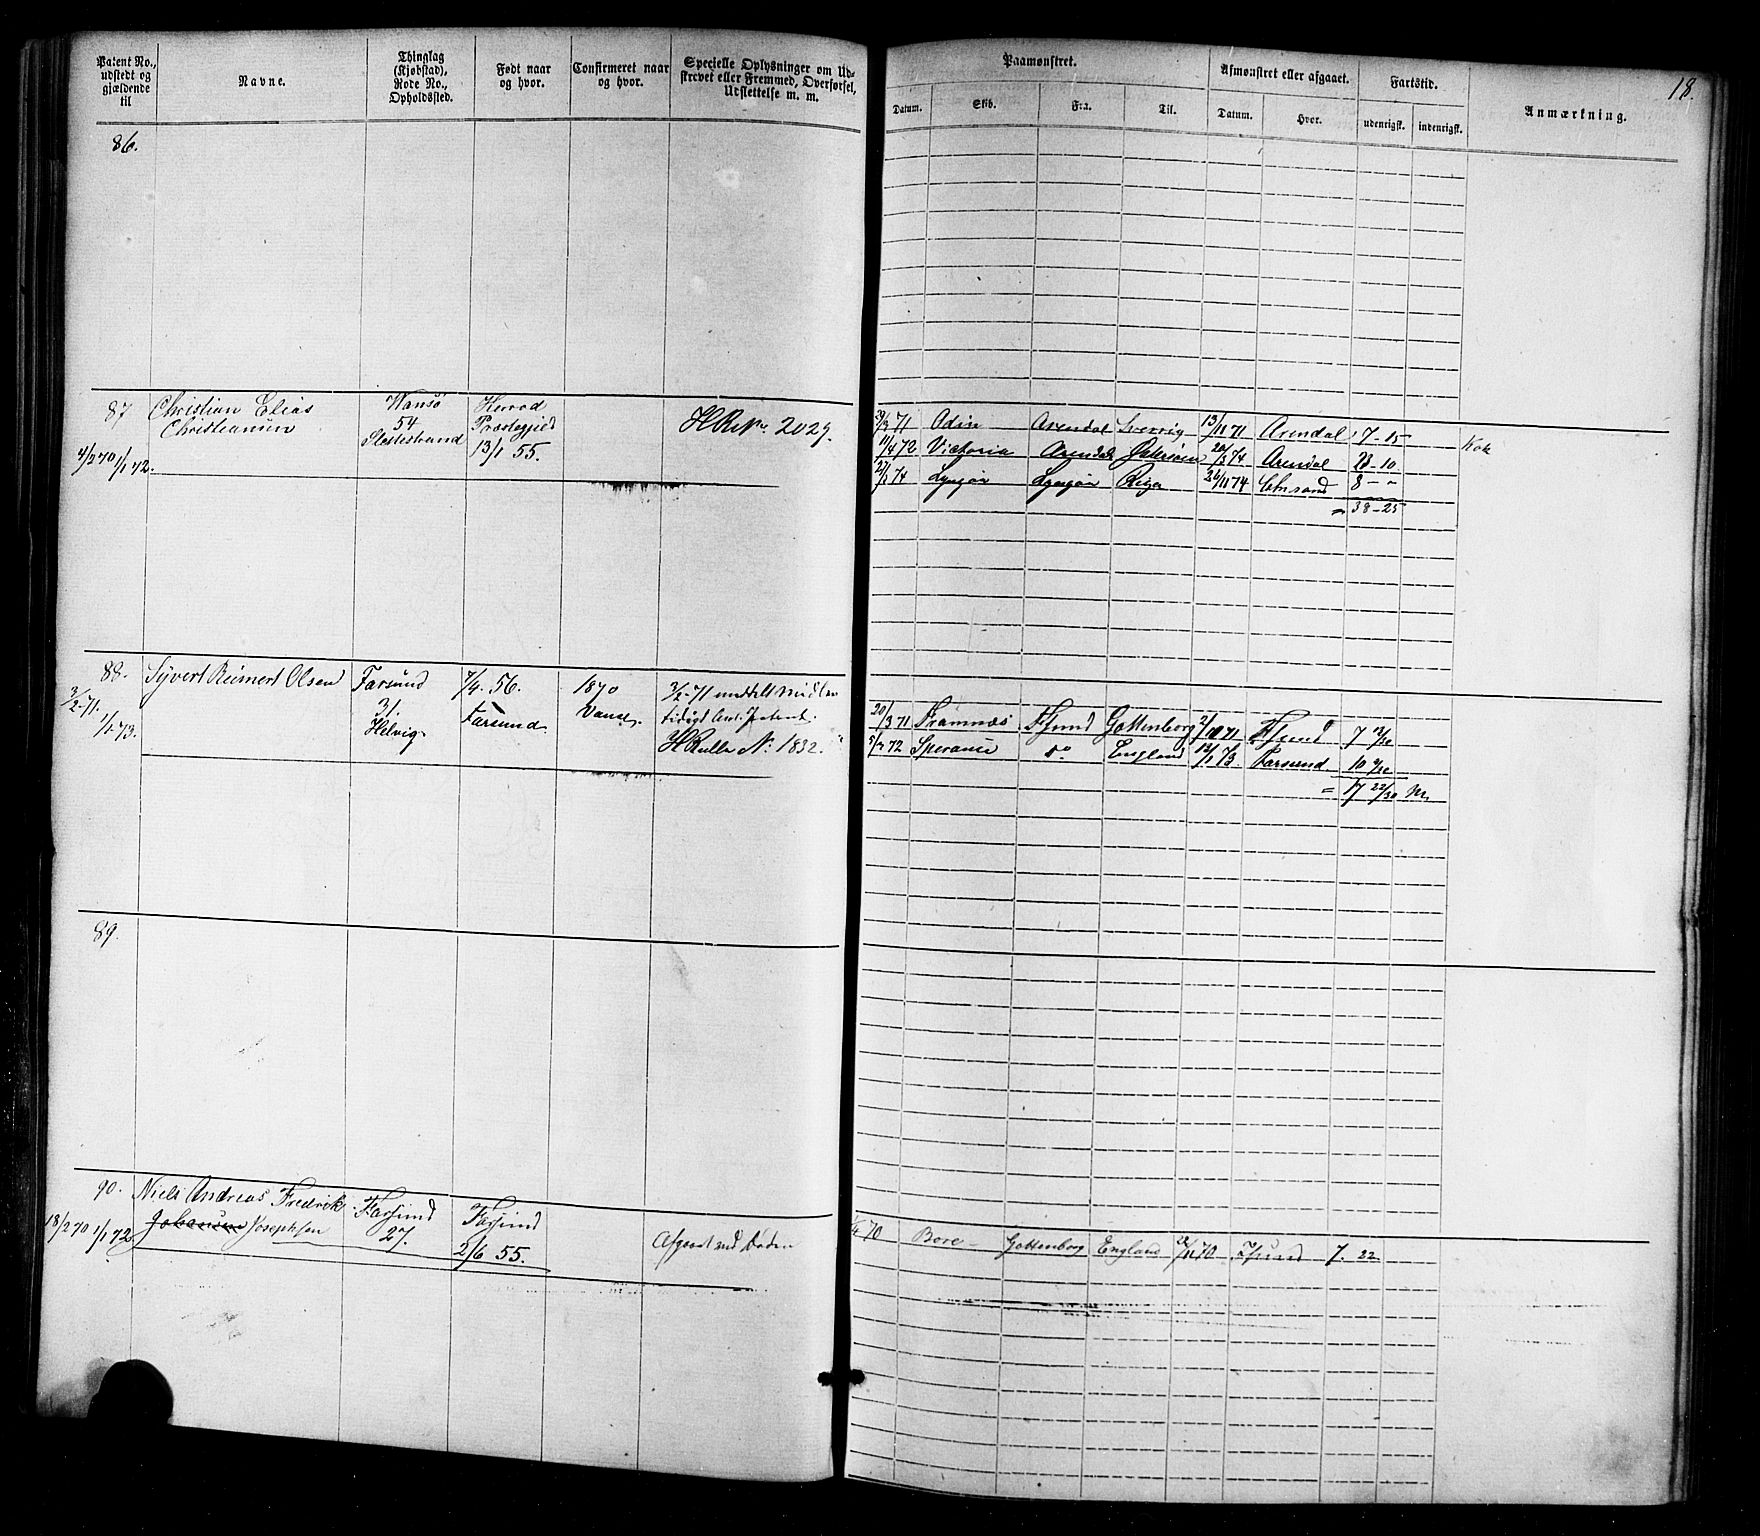 Patent No., udstedt og gjældende til
Navne.
Thinglag (Kjøbstad), Rode No., Opholdsted.
Født naar og hvor.
Confirmeret naar og hvor.
Specielle Oplysninger om Udskrevet eller Fremmed, Overførsel, Udslettelse m. m.
Paamønstret.
Afmønstret eller afgaaet.
Fartstid.
18.
Datum.
Skib.
Fra.
Til.
Datum.
Hvor.
udenrigsk.
indenrigsk.
Anmærkning.
86.
87 Christian Elias
Christiansen
4/2 70 1/1 72.
Wansø
54
Herrod
Præstegjeld
13/1 55.
H.R. No. 2029.
29/3 71 Odin Arendal Sverrig 13/11 71 Arendal 7-15 Kok
11/4 72 Victoria Arendal 20/3 74 Arendal 23-10
74 Lyngør Lyngør Riga 26/11 74 Chrsand 8 - "
= 38-25
88. Syvert Reimert Olsen
3/2-71.
1/1-73.
Farsund
31.
Helvig
7/4. 56.
Farsund
1870
Vanse
3/2-71 meddelt
Patent.
H Rulle No. 1832.
20/3 71 Framnæs Fsund Gottenborg 2/11 71 Fsund 7 13/30
5/3 72 Sperance do England 12/1 73. Farsund 10 9/30
= 17 22/30 M.
89.
90. Niels Andreas Fredrik
Johansen Josephsen
18/2 70 1/1 72
Farsund
27.
Farsund
2/6 55.
Afgaaet ved Døden
70 Bore Gottenborg England 70 Fsund 7. 22